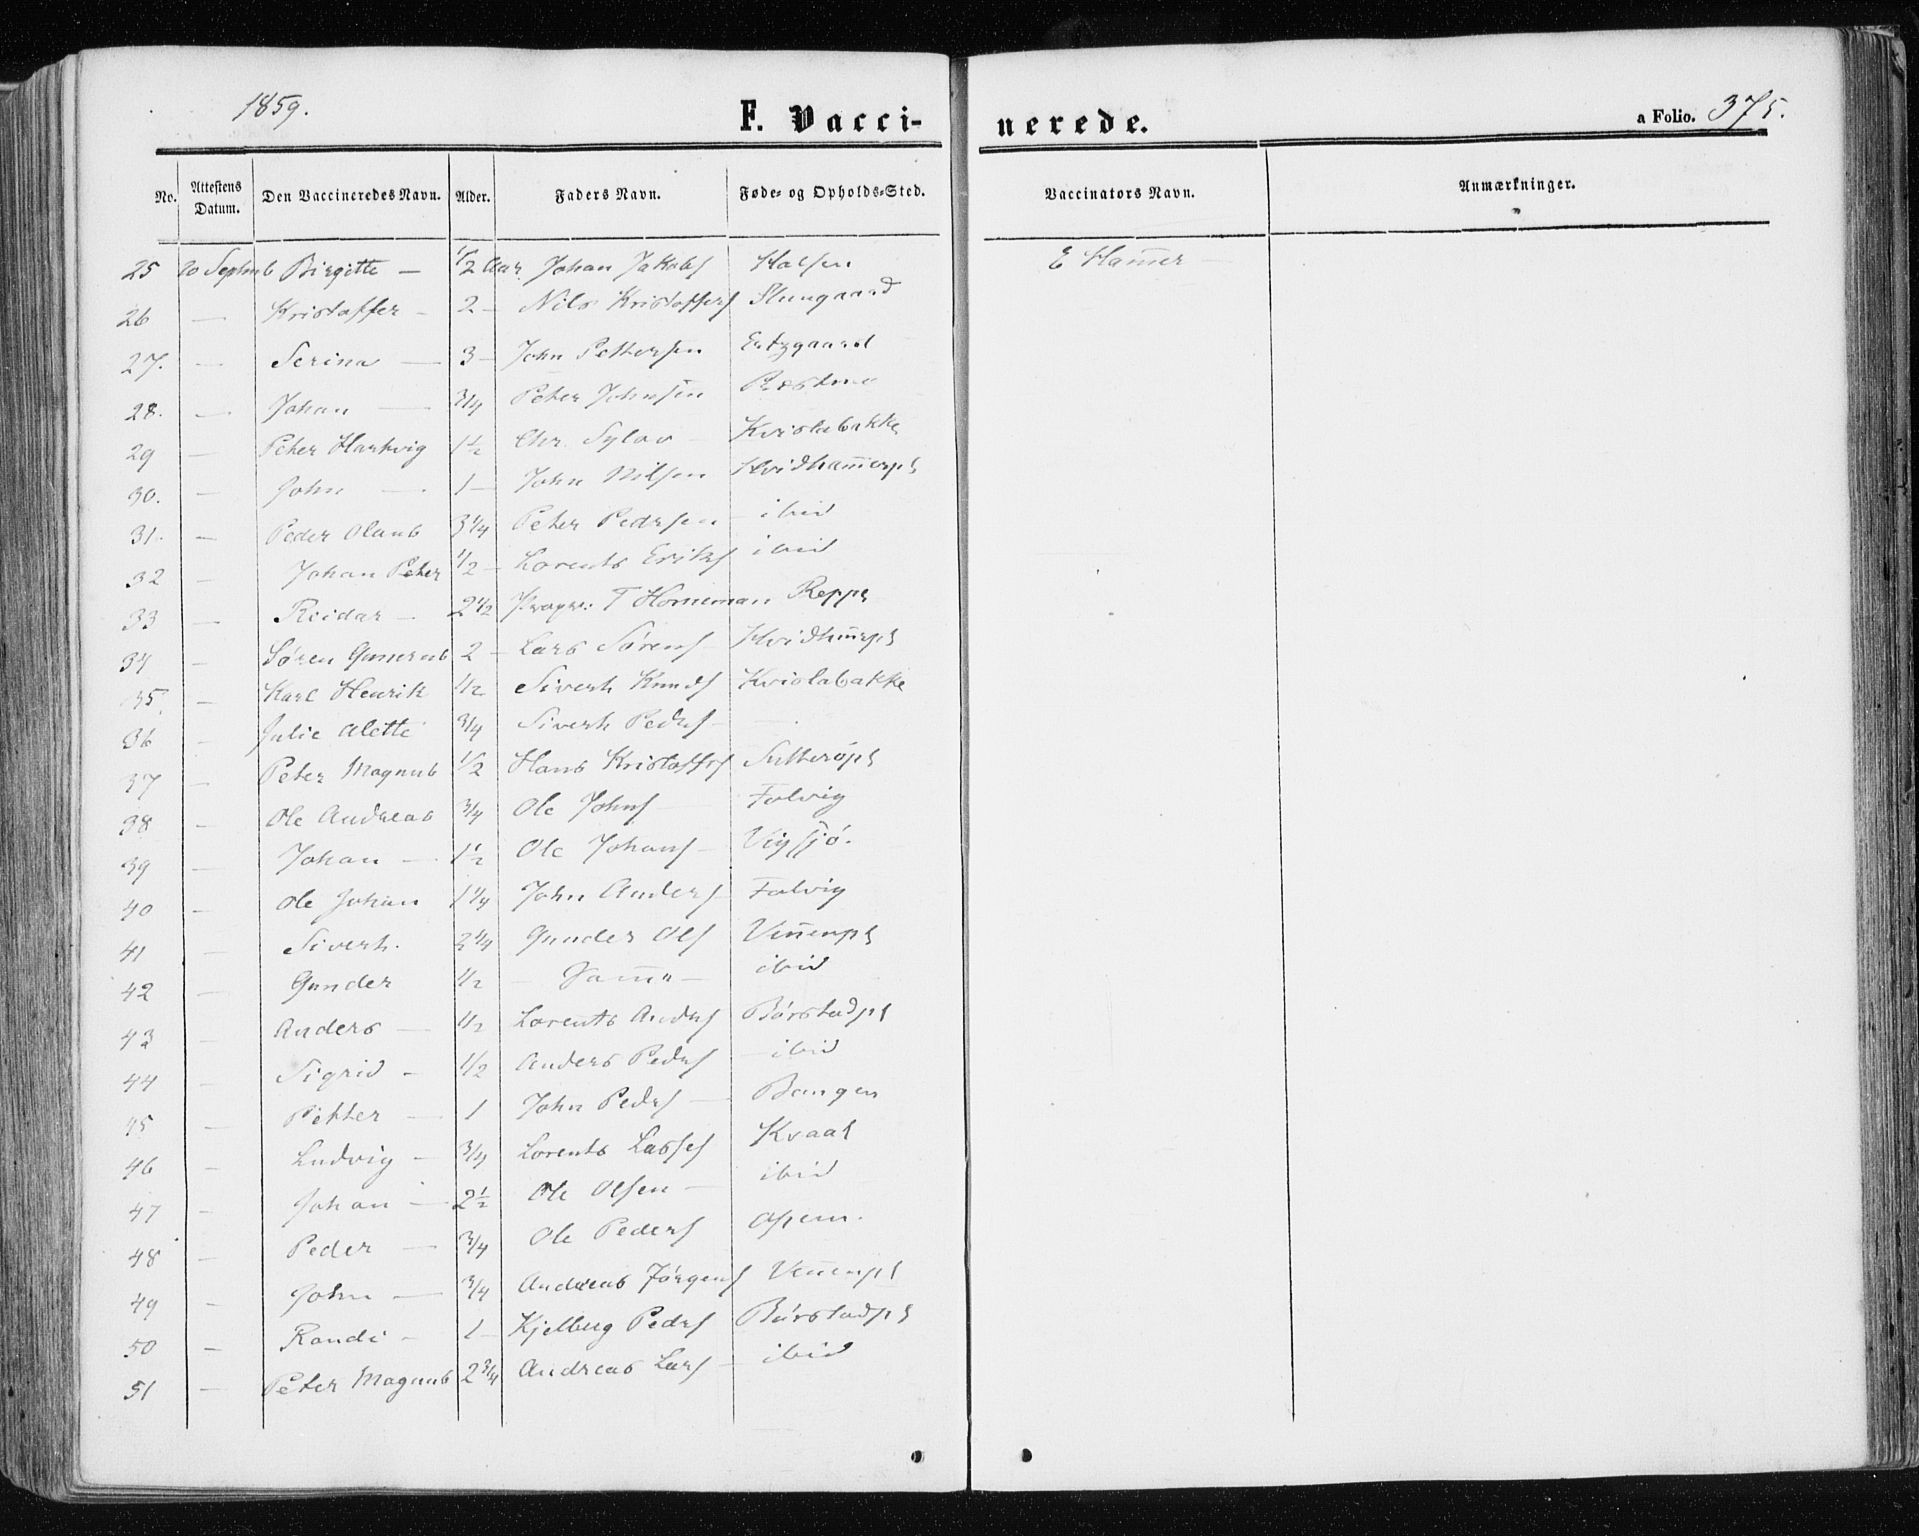 1859.
F. Vacci-
nerede.
a Folio. 375.
No. Attestens Datum. Den Vaccineredes Navn. Alder. Faders Navn. Føde- og Opholds-Sted. Vaccinators Navn. Anmærkninger.
25 20 Septmb Birgitte — 1/2 Aar Johan Jakobs Halsen E Ham̄er —
26 — Kristoffer — 2 — Nils Kristoffers
27. — Serina — 3 — John Pettersen
28. — Johan — 3/4 Peter Johnsen
29 — Peter Hartvig 1 1/2 Chr. Sylow — Kvislabakke
30. — John — 1 — John Nilsen Hvidham̄erpl
31. — Peder Olaus 3 1/4 Peter Pedersen — ibid
32 — Johan Peter 1/2 — Lorents Eriks ibid
33 — Reidar — 2 1/2 Propr: T Horneman Reppe
34 — Søren Gunerus 2 — Lars Sørens Hvidhm̄rpl
35. — Karl Henrik 1/2 Sivert Knuds Kvislabakke
36 — Julie Alette 3/4 Sivert Peders — —
37 — Peter Magnus 1/2 Hans Kristoffs Sutterøpl
38 — Ole Andreas 3/4 Ole Johns — Folvig
39 — Johan — 1 1/2 Ole Johans — Vigsjø.
40 — Ole Johan 1 1/4 John Anders — Folvig
41 — Sivert. 2 1/4 Gunder Ols Ven̄enpl
42 — Gunder 1/2 — Sam̄e — ibid
43 — Anders — 1/2 Lorents Anders Børstadpl
44 — Sigrid — 1/2 Anders Peders — ibid
45 — Petter — 1 John Peders — Bangen
46 — Ludvig — 3/4 Lorents Lasses Kvaal
47 — Johan — 2 1/2 Ole Olsen — ibid
48 — Peder — 3/4 Ole Peders
49 — John — 3/4 Andreas Jørgens Ven̄enpl
50 — Randi — 1 — Kjelberg Peders Børstadpl
51 — Peter Magnus 2 3/4 Andreas Lars — ibid